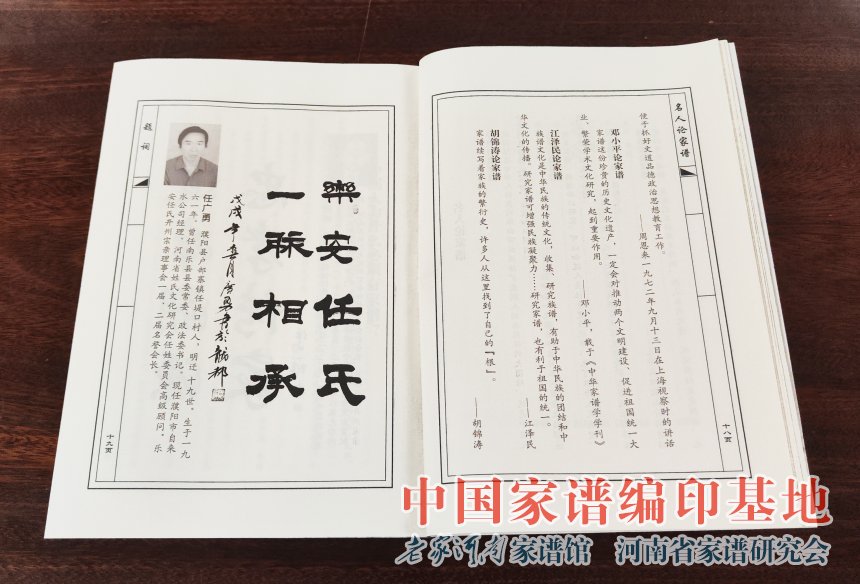 名人论家谱
便于抓好文道品德政治思想教育工作。
——周恩来一九七二年九月十三日在上海视察时的讲话
邓小平论家谱
家谱这份珍贵的历史文化遗产，一定会对推动两个文明建设、促进祖国统一大
业、繁荣学术文化研究，起到重要作用。
——邓小平，载于《中华家谱学学刊》
江泽民论家谱
族谱文化是中华民族的传统文化，收集、研究族谱，有助于中华民族的团结和中
华文化的传播。研究家谱可增强民族凝聚力……研究家谱，也有利于祖国的统一。
——江泽民
胡锦涛论家谱
家谱续写着家族的繁衍史，许多人从这里找到了自己的『根』。
——胡锦涛
十八页
题词
樂安任氏
一脉相承
戊戌年
任广勇 濮阳县户部寨镇任堤口村人，明迁十九世。生于一九
六一年。曾任南乐县县委常委、政法委书记。现任濮阳市自来
水公司经理、河南省姓氏文化研究会任姓委员会高级顾问，乐
安任氏开州宗亲理事会一届、二届名誉会长。
十九页
中国家谱编印基地
老家河南家谱馆 河南省家谱研究会